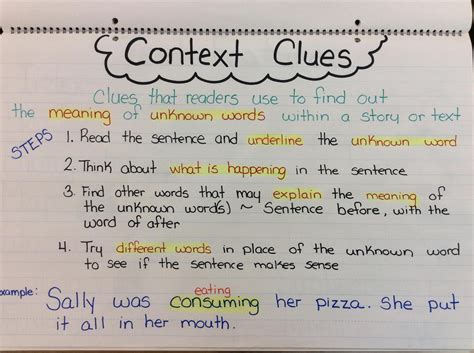 Context Clues
Clues that readers use to find out
the meaning of unknown words within a story or text
STEPS
1. Read the sentence and underline the unknown word
2. Think about what is happening in the sentence
3. Find other words that may explain the meaning of
the unknown word(s) ~ Sentence before, with the
word of after
4. Try different words in place of the unknown word
to see if the sentence makes sense
xample:
eating
Sally was consuming her pizza. She put
it all in her mouth.